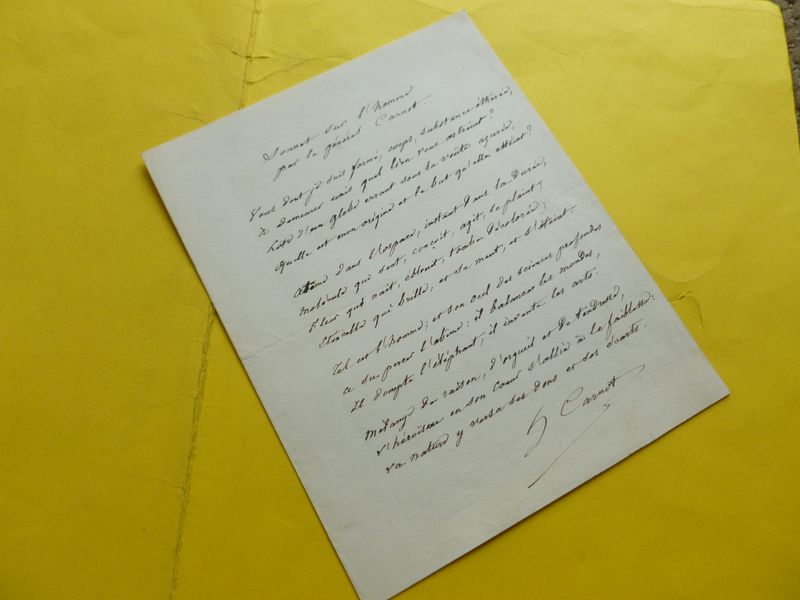 Sonnet sur l'homme
par le général Carnot.
Vous dont je suis formé, corps, substance éthérée,
à demeurer unis quel lien vous astreint?
hôte d'un globe errant sous la voûte azurée,
Quelle est mon origine et le but qu'elle atteint?
Atôme dans l'espace, instant dans la Durée,
Molécule qui sent, conçoit, agit, se plaint;
Fleur qui nait, éblouit, tombe Décolorée;
Etincelle qui brille, et se meut, et s'éteint;
Tel est l'homme; et son oeil des sciences profondes
a su percer l'abîme; il balance les mondes,
Il dompte l'éléphant, il invente les arts.
Mélange de raison, d'orgueil et de tendresse,
L'héroïsme en son coeur s'allie à la faiblesse:
La nature y versa ses dons et ses écarts.
Carnot